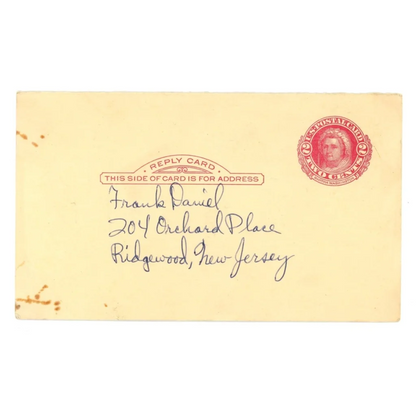 REPLY CARD
THIS SIDE OF CARD IS FOR ADDRESS
U.S. POSTAL CARD
2¢ 2¢
TWO CENTS
Frank Daniel
204 Orchard Place
Ridgewood, New Jersey